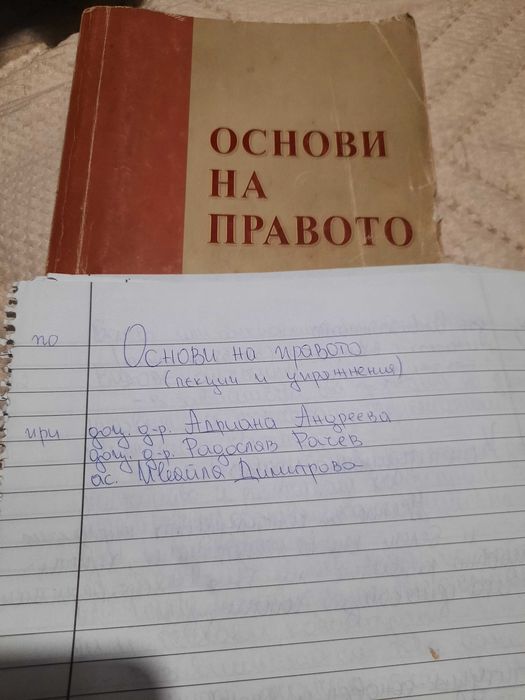 ОСНОВИ
НА
ПРАВОТО
по Основи на правото
(лекции и упражнения)
при доц. д-р. Адриана Андреева
доц. д-р. Радослав Рачев
ас. Михайла Димитрова